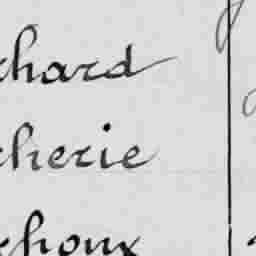 chard
cherie
choux